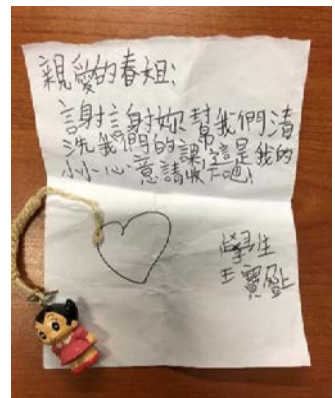 親愛的春姐:
謝謝妳幫我們清
洗我們的課室這是我的
小小心意請收下吧!
學生
王寶盈